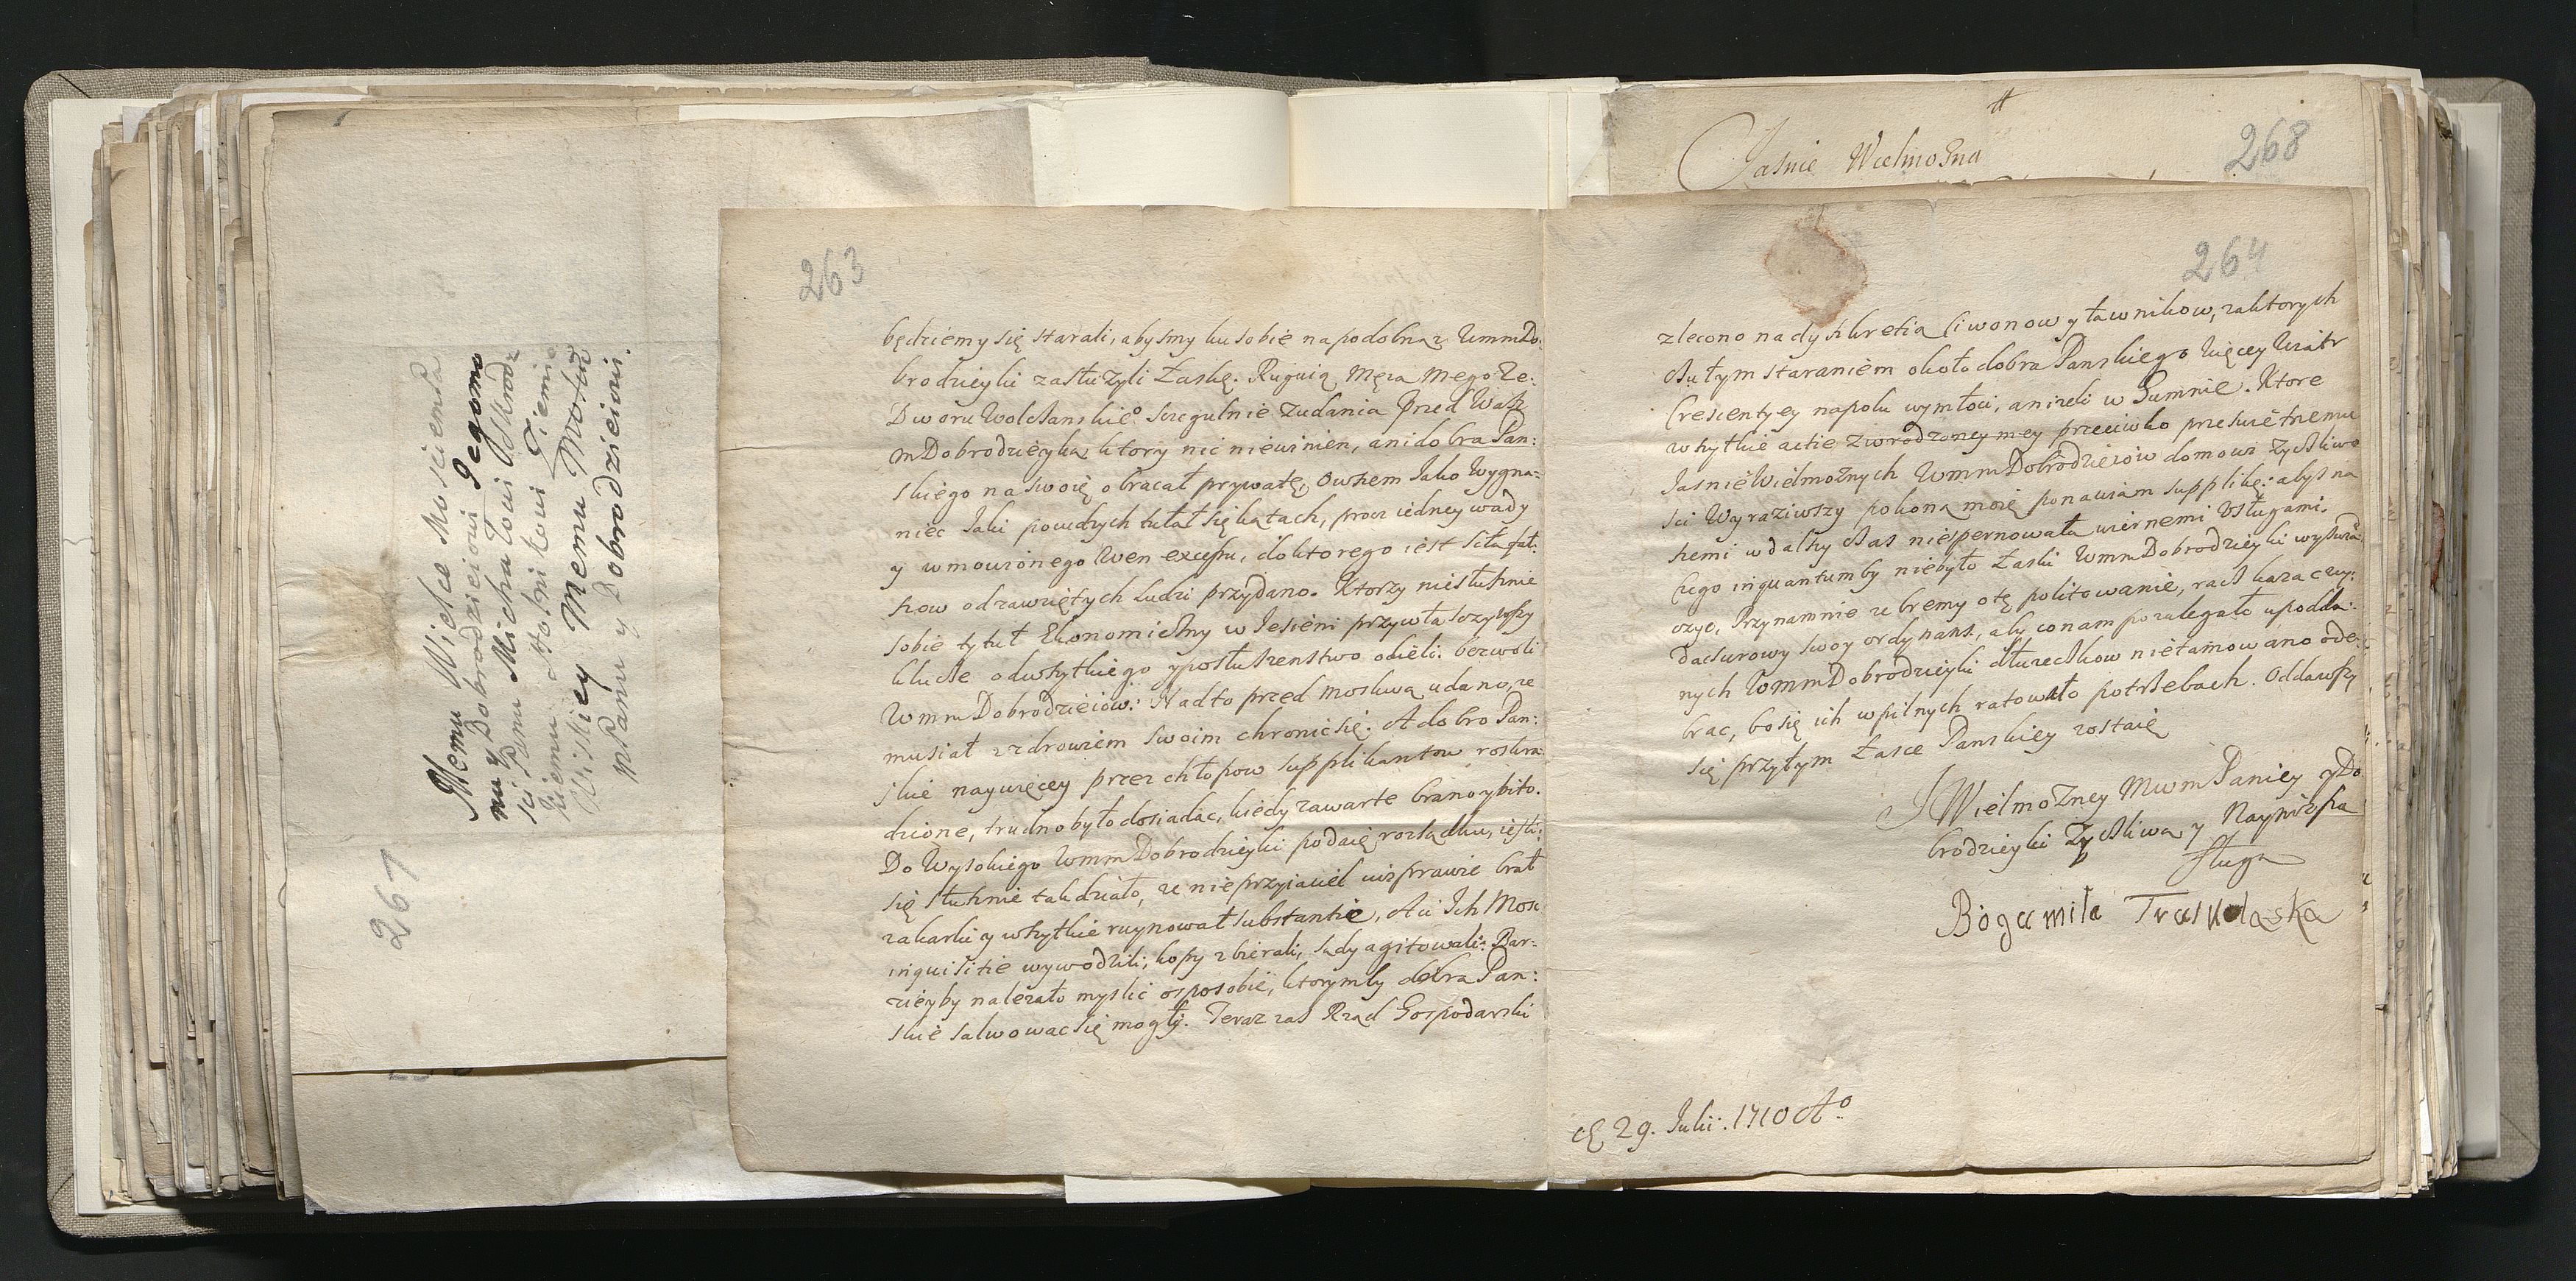 Memu Wielce Mosciemu
mu y Dobrodzieiowi Jegomo
sci Panu Michałowi
Memu y
m Panu y Dobrodzieiowi.
267
263
będziemy się starali, abysmy ku sobie napodobną UmmDo:
brodzieyki zasłużyli Łaskę. Ruguią Męża Mego Ze:
Dworu Wolczanskieº szegulnie Zudania Przed Wasz
mDobrodzieyką ktory nic niewinien, ani dobra Pan:
skiego na swoię obracał prywatę, Owszem Jako Wygna=
niec Jaki po cudzych tułał się kątach, procz iedney wady
y wmowionego Wen excessu, do ktorego iest siła fał:
szow od zawziętych Ludzi przydano. Ktorzy niesłusznie
sobie tytuł Ekonomiczny w Jesieni przywłaszczywszy
klucze odwszytkiego y posłuszenstwo odieli. bez woli
WmmDobrodzieiow: Nadto przed Moskwą udano, ze
musiał z zdrowiem swoim chronic się. A dobro Pan:
skie naywięcey przez chłopow supplikantow roskra:
dzione, trudno było dosiadac, kiedy zawarte brano y bito.
Do Wysokiego WmmDobrodzieyki podaię rozsądku, iesli:
się słusznie tak działo, ze nieprzyiaciel wisprawie brał
zakarki y wszytkie ruynował substantie, A ci Ich Mosc
inquisitie wywodzili, kopy zbierali, sądy agitowali: Bar:
zieyby nalezało myslic osposobie, ktorymby dobra Pan:
skie salwowac się mogły. Teraz zas Rząd Gospodarski
Jasnie Wielmozna
268
264
zlecono na dyskretią Ciwonow y ławnikow, zaktorych
czułym staraniem około dobra Panskiego Więcey Wiatr
Cresientyey napolu wymłoci, anizeli w Gumnie. Ktore
wszytkie actie Zwrodzoney mey przeciwko przeswietnemu
JasnieWielmoznych WmmDobrodzieiow domowi zyczliwo
sci Wyraziwszy pokorną moię ponawiam supplikę: abys na
szemi w dalszy czas niespernowała wiernemi Vsługami.
Czego inquantum by niebyło Łaski WmmDobrodzieyki
ozyc, Przynamnie zebrzemy otę politowanie, racz
dac surowy swoy ordynans, aby co nam pozalegało upodda:
nych WmmDobrodzieyki dłuzeczkow nietamowano ode:
brac, bo się ich wpilnych ratowało potrzebach. Oddawszy
się przytym Łasce Panskiey zostaię
JWielmozney MwmPaniey y Do
brodzieyki Zyczliwą y Nayniższa
sługa
Bogumiła Traskolaska
29. Julii. 1710 Aº